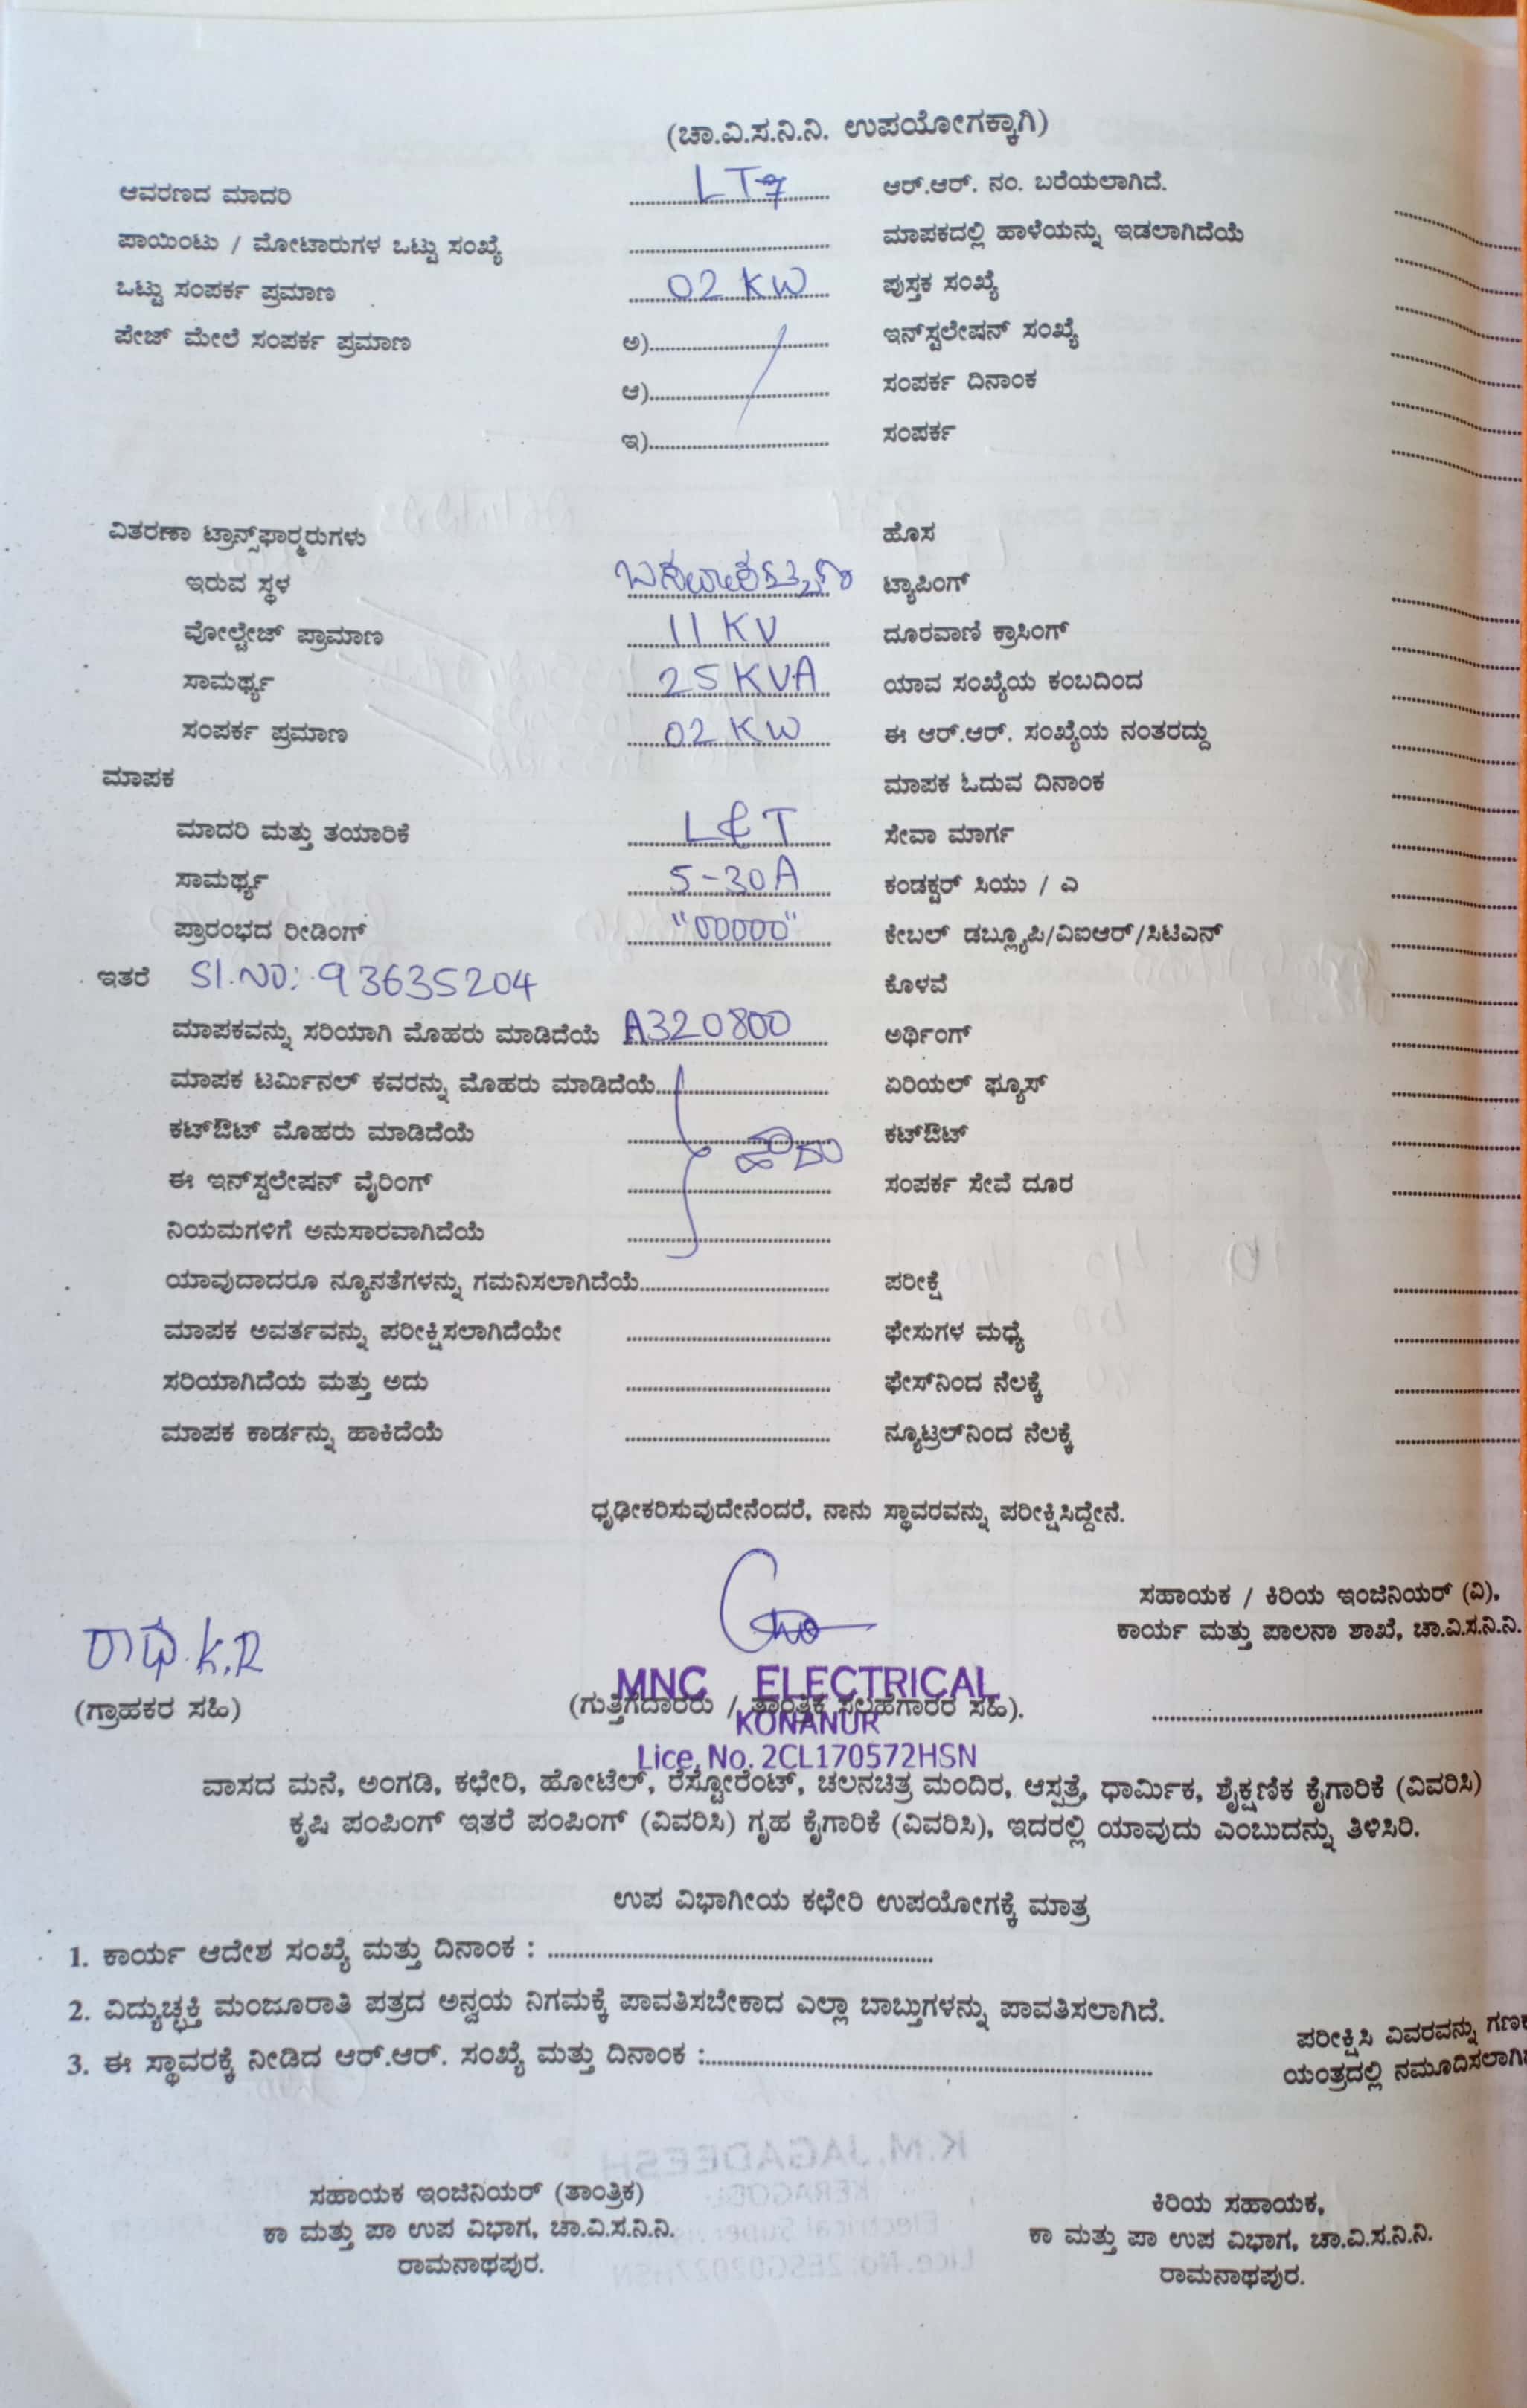 (ಚಾ.ವಿ.ಸ.ನಿ.ನಿ. ಉಪಯೋಗಕ್ಕಾಗಿ)
ಆವರಣದ ಮಾದರಿ LT7 ಆರ್.ಆರ್. ನಂ. ಬರೆಯಲಾಗಿದೆ.
ಪಾಯಿಂಟು / ಮೋಟಾರುಗಳ ಒಟ್ಟು ಸಂಖ್ಯೆ ಮಾಪಕದಲ್ಲಿ ಹಾಳೆಯನ್ನು ಇಡಲಾಗಿದೆಯೆ
ಒಟ್ಟು ಸಂಪರ್ಕ ಪ್ರಮಾಣ 02 KW ಪುಸ್ತಕ ಸಂಖ್ಯೆ
ಪೇಜ್ ಮೇಲೆ ಸಂಪರ್ಕ ಪ್ರಮಾಣ ಅ) ಇನ್‌ಸ್ಟಲೇಷನ್ ಸಂಖ್ಯೆ
ಆ) ಸಂಪರ್ಕ ದಿನಾಂಕ
ಇ) ಸಂಪರ್ಕ
ವಿತರಣಾ ಟ್ರಾನ್ಸ್‌ಫಾರ್‍ಮರುಗಳು ಹೊಸ
ಇರುವ ಸ್ಥಳ ಟ್ಯಾಪಿಂಗ್
ವೋಲ್ಟೇಜ್ ಪ್ರಾಮಾಣ 11 KV ದೂರವಾಣಿ ಕ್ರಾಸಿಂಗ್
ಸಾಮರ್ಥ್ಯ 25 KVA ಯಾವ ಸಂಖ್ಯೆಯ ಕಂಬದಿಂದ
ಸಂಪರ್ಕ ಪ್ರಮಾಣ 02 KW ಈ ಆರ್.ಆರ್. ಸಂಖ್ಯೆಯ ನಂತರದ್ದು
ಮಾಪಕ ಮಾಪಕ ಓದುವ ದಿನಾಂಕ
ಮಾದರಿ ಮತ್ತು ತಯಾರಿಕೆ L&T ಸೇವಾ ಮಾರ್ಗ
ಸಾಮರ್ಥ್ಯ 5-30A ಕಂಡಕ್ಟರ್ ಸಿಯು / ಎ
ಪ್ರಾರಂಭದ ರೀಡಿಂಗ್ "00000" ಕೇಬಲ್ ಡಬ್ಲ್ಯೂಪಿ/ವಿಐಆರ್/ಸಿಟಿಎನ್
ಇತರೆ Sl.No: 93635204 ಕೊಳವೆ
ಮಾಪಕವನ್ನು ಸರಿಯಾಗಿ ಮೊಹರು ಮಾಡಿದೆಯೆ A320800 ಅರ್ಥಿಂಗ್
ಮಾಪಕ ಟರ್ಮಿನಲ್ ಕವರನ್ನು ಮೊಹರು ಮಾಡಿದೆಯೆ ಏರಿಯಲ್ ಫ್ಯೂಸ್
ಕಟ್‌ಔಟ್ ಮೊಹರು ಮಾಡಿದೆಯೆ ಹೌದು ಕಟ್‌ಔಟ್
ಈ ಇನ್‌ಸ್ಟಲೇಷನ್ ವೈರಿಂಗ್ ಸಂಪರ್ಕ ಸೇವೆ ದೂರ
ನಿಯಮಗಳಿಗೆ ಅನುಸಾರವಾಗಿದೆಯೆ
ಯಾವುದಾದರೂ ನ್ಯೂನತೆಗಳನ್ನು ಗಮನಿಸಲಾಗಿದೆಯೆ ಪರೀಕ್ಷೆ
ಮಾಪಕ ಅವರ್ತವನ್ನು ಪರೀಕ್ಷಿಸಲಾಗಿದೆಯೇ ಫೇಸುಗಳ ಮಧ್ಯೆ
ಸರಿಯಾಗಿದೆಯ ಮತ್ತು ಅದು ಫೇಸ್‌ನಿಂದ ನೆಲಕ್ಕೆ
ಮಾಪಕ ಕಾರ್ಡನ್ನು ಹಾಕಿದೆಯೆ ನ್ಯೂಟ್ರಲ್‌ನಿಂದ ನೆಲಕ್ಕೆ
ಧೃಢೀಕರಿಸುವುದೇನೆಂದರೆ, ನಾನು ಸ್ಥಾವರವನ್ನು ಪರೀಕ್ಷಿಸಿದ್ದೇನೆ.
ಸಹಾಯಕ / ಕಿರಿಯ ಇಂಜಿನಿಯರ್ (ವಿ),
ಕಾರ್ಯ ಮತ್ತು ಪಾಲನಾ ಶಾಖೆ, ಚಾ.ವಿ.ಸ.ನಿ.ನಿ.
ರಾಧ.K.R
MNC ELECTRICAL
(ಗ್ರಾಹಕರ ಸಹಿ) (ಗುತ್ತಿಗೆದಾರರು / ತಾಂತ್ರಿಕ ಸಲಹೆಗಾರರ ಸಹಿ).
KONANUR
Lice. No. 2CL170572HSN
ವಾಸದ ಮನೆ, ಅಂಗಡಿ, ಕಛೇರಿ, ಹೋಟೆಲ್, ರೆಸ್ಟೋರೆಂಟ್, ಚಲನಚಿತ್ರ ಮಂದಿರ, ಆಸ್ಪತ್ರೆ, ಧಾರ್ಮಿಕ, ಶೈಕ್ಷಣಿಕ ಕೈಗಾರಿಕೆ (ವಿವರಿಸಿ)
ಕೃಷಿ ಪಂಪಿಂಗ್ ಇತರೆ ಪಂಪಿಂಗ್ (ವಿವರಿಸಿ) ಗೃಹ ಕೈಗಾರಿಕೆ (ವಿವರಿಸಿ), ಇದರಲ್ಲಿ ಯಾವುದು ಎಂಬುದನ್ನು ತಿಳಿಸಿರಿ.
ಉಪ ವಿಭಾಗೀಯ ಕಛೇರಿ ಉಪಯೋಗಕ್ಕೆ ಮಾತ್ರ
1. ಕಾರ್ಯ ಆದೇಶ ಸಂಖ್ಯೆ ಮತ್ತು ದಿನಾಂಕ :
2. ವಿದ್ಯುಚ್ಛಕ್ತಿ ಮಂಜೂರಾತಿ ಪತ್ರದ ಅನ್ವಯ ನಿಗಮಕ್ಕೆ ಪಾವತಿಸಬೇಕಾದ ಎಲ್ಲಾ ಬಾಬ್ತುಗಳನ್ನು ಪಾವತಿಸಲಾಗಿದೆ.
3. ಈ ಸ್ಥಾವರಕ್ಕೆ ನೀಡಿದ ಆರ್.ಆರ್. ಸಂಖ್ಯೆ ಮತ್ತು ದಿನಾಂಕ :
ಪರೀಕ್ಷಿಸಿ ವಿವರವನ್ನು ಗಣಕ
ಯಂತ್ರದಲ್ಲಿ ನಮೂದಿಸಲಾಗಿ
ಸಹಾಯಕ ಇಂಜಿನಿಯರ್ (ತಾಂತ್ರಿಕ)
ಕಾ ಮತ್ತು ಪಾ ಉಪ ವಿಭಾಗ, ಚಾ.ವಿ.ಸ.ನಿ.ನಿ.
ರಾಮನಾಥಪುರ.
ಕಿರಿಯ ಸಹಾಯಕ,
ಕಾ ಮತ್ತು ಪಾ ಉಪ ವಿಭಾಗ, ಚಾ.ವಿ.ಸ.ನಿ.ನಿ.
ರಾಮನಾಥಪುರ.